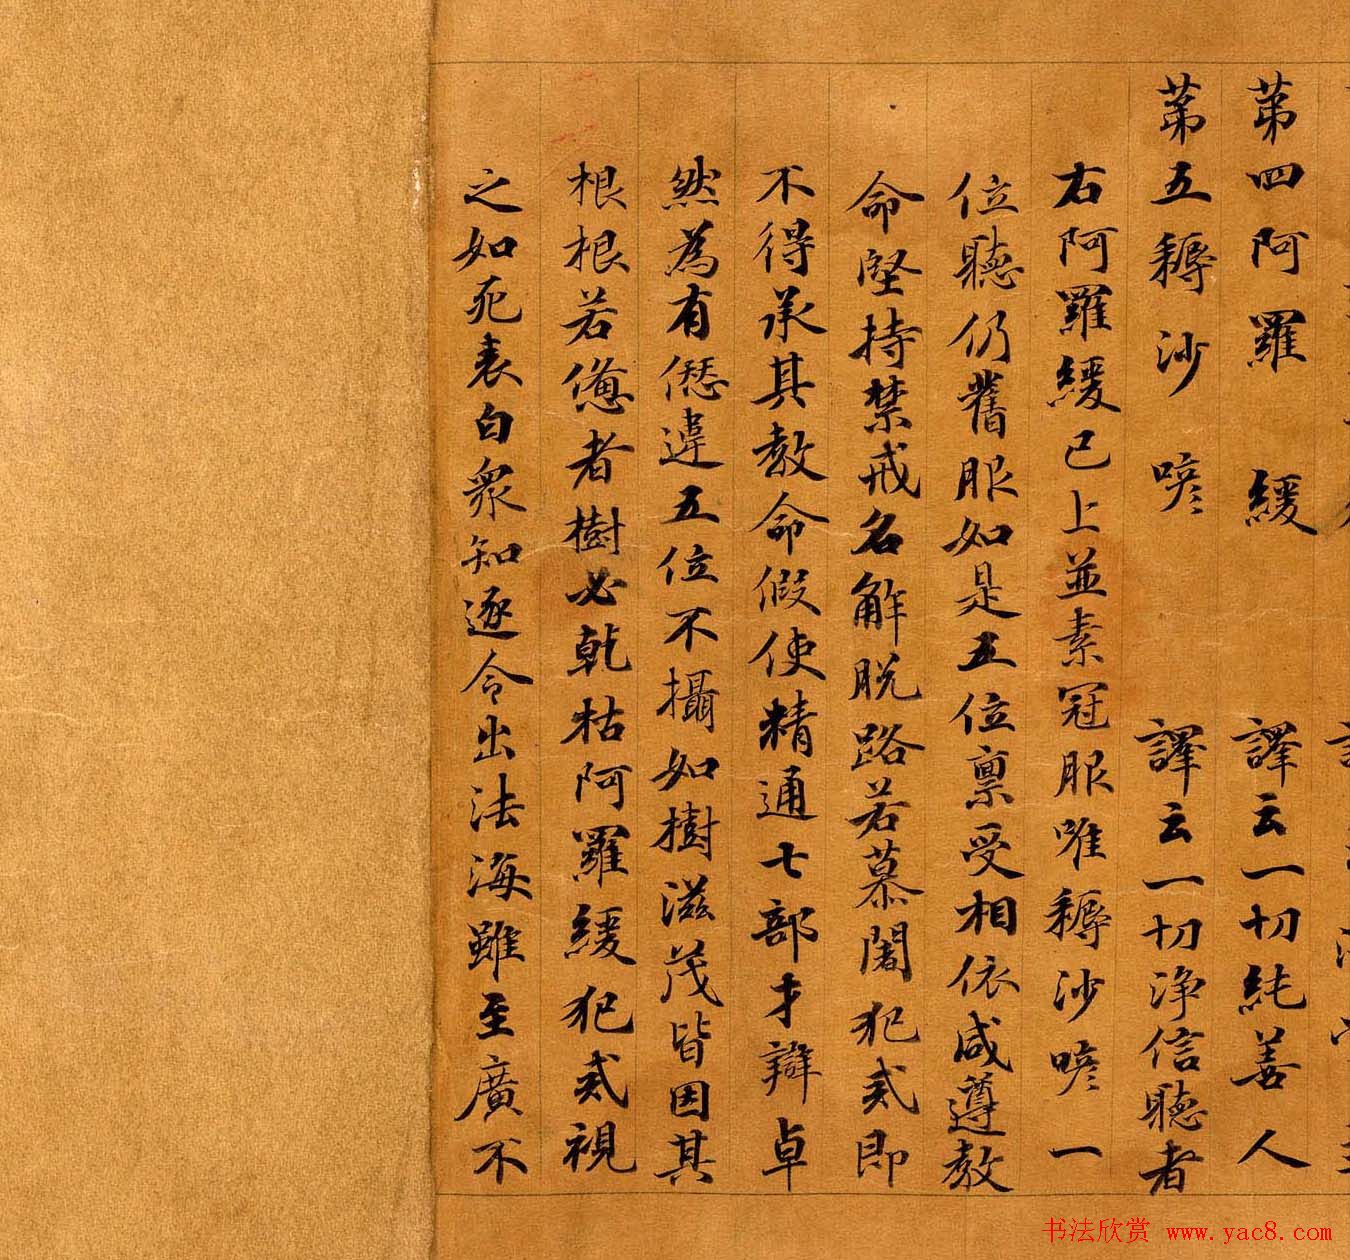 第四阿羅緩 譯云一切純善人
第五耨沙喭 譯云一切淨信聽者
右阿羅緩已上並素冠服唯耨沙喭一
位聽仍舊服如是五位稟受相依咸遵教
命堅持禁戒名解脫路若慕闍犯戒即
不得承其教命假使精通七部才辯卓
然為有愆違五位不攝如樹滋茂皆因其
根根若憊者樹必乾枯阿羅緩犯戒視
之如死表白眾知逐令出法海雖至廣不
书法欣赏 www.yac8.com